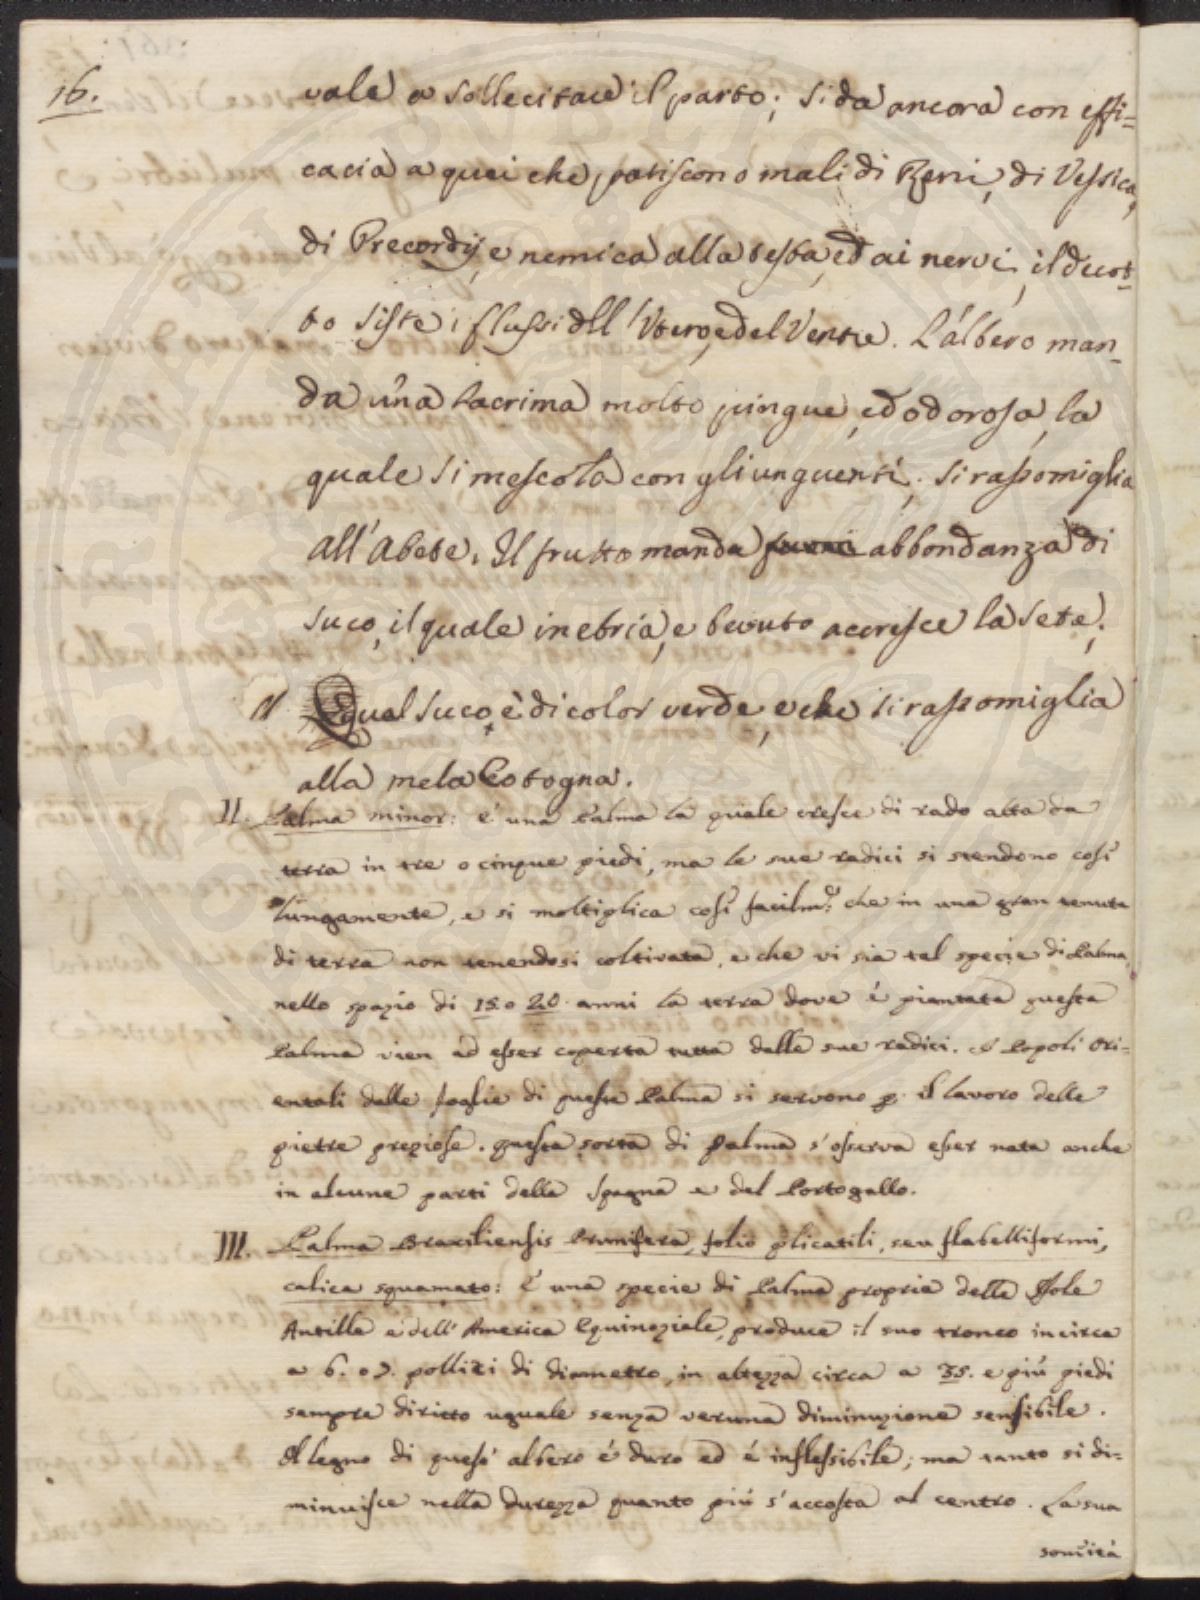 16.
vale a sollecitare il parto; si da ancora con effi=
cacia a quei che patiscono mali di Reni, di Vessica,
di Precordij, e nemica alla testa, ed ai nervi, il decot=
to siste i flussi dell'Utero, e del Ventre. L'albero man=
da una lacrima molto pingue, ed odorosa, la
quale si mescola con gli unguenti; si rassomiglia
all'Abete. Il frutto manda abbondanza di
suco, il quale inebria, e bevuto accresce la sete;
Qual suco è di color verde, e che si rassomiglia
alla mela Cotogna.
II. Palma minor: é una Palma la quale cresce di rado alta da
terra in tre o cinque piedi, ma le sue radici si stendono così
lungamente, e si moltiplica così facilm.e che in una gran tenuta
di terra non tenendosi coltivata, e che vi sia tal specie di Palma,
nello spazio di 15. o 20. anni la terra dove é piantata questa
Palma vien ad esser coperta tutta dalle sue radici. I Popoli Ori=
entali delle foglie di questa Palma si servono p. il lavoro delle
pietre preziose. questa sorta di Palma s'osserva esser nata anche
in alcune parti della Spagna e del Portogallo.
III. Palma Brasiliensis Prunifera, folio plicatili, seu flabelliformi,
calice squamato: É una specie di Palma propria delle Isole
Antille e dell'America Equinoziale, produce il suo tronco incirca
a 6. o 7. pollici di diametro, in altezza circa a 35. e più piedi
sempre diritto uguale senza veruna diminuzione sensibile.
Il legno di quest'albero é duro ed é inflessibile; ma tanto si di=
minuisce nella durezza quanto più s'accosta al centro. La sua
somità